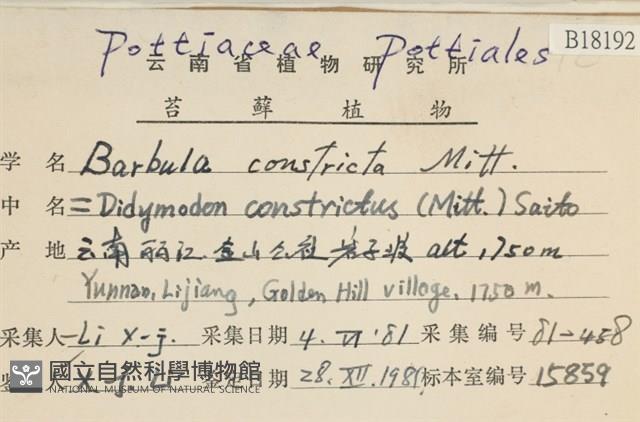 Pottiaceae Pottiales
B18192
云南省植物研究所
苔藓植物
学名 Barbula constricta Mitt.
中名 = Didymodon constrictus (Mitt.) Saito
产地 云南丽江.金山公社 alt, 1750m
Yunnan, Lijiang, Golden Hill village. 1750 m.
采集人 Li X-j. 采集日期 4. VI '81 采集编号 81-458
定日期 28. XII. 1981 标本室编号 15859
國立自然科學博物館
NATIONAL MUSEUM OF NATURAL SCIENCE